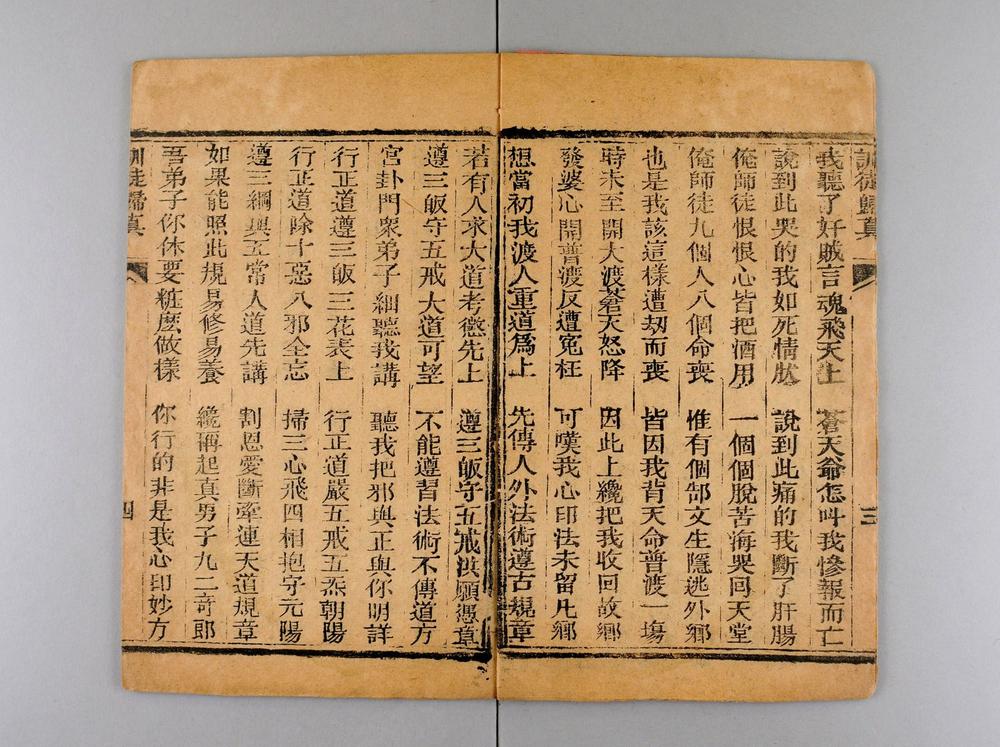 訓徒歸真
三
我聽了好賊言魂飛天上 蒼天爺怎叫我慘報而亡
說到此哭的我如死情狀 說到此痛的我斷了肝腸
俺師徒恨恨心皆把酒用 一個個脫苦海哭囘天堂
俺師徒九個人八個命喪 惟有個郜文生隱逃外鄉
也是我該這樣遭刼而喪 皆因我背天命普渡一塲
時未至開大渡蒼天怒降 因此上纔把我收回故鄉
發婆心開普渡反遭冤枉 可嘆我心印法未留凡鄉
想當初我渡人重道爲上 先傳人外法術遵古規章
若有人求大道考懲先上 遵三皈守五戒洪願憑章
遵三皈守五戒大道可望 不能遵習法術不傳道方
宮卦門衆弟子細聽我講 聽我把邪與正與你明詳
行正道遵三皈三花表上 行正道嚴五戒五炁朝陽
行正道除十惡八邪全忘 掃三心飛四相抱守元陽
遵三綱與五常人道先講 割恩愛斷牽連天道規章
如果能照此規易修易養 纔稱起真男子九二奇郎
吾弟子你休要粧麽做樣 你行的非是我心印妙方
訓徒歸真
四